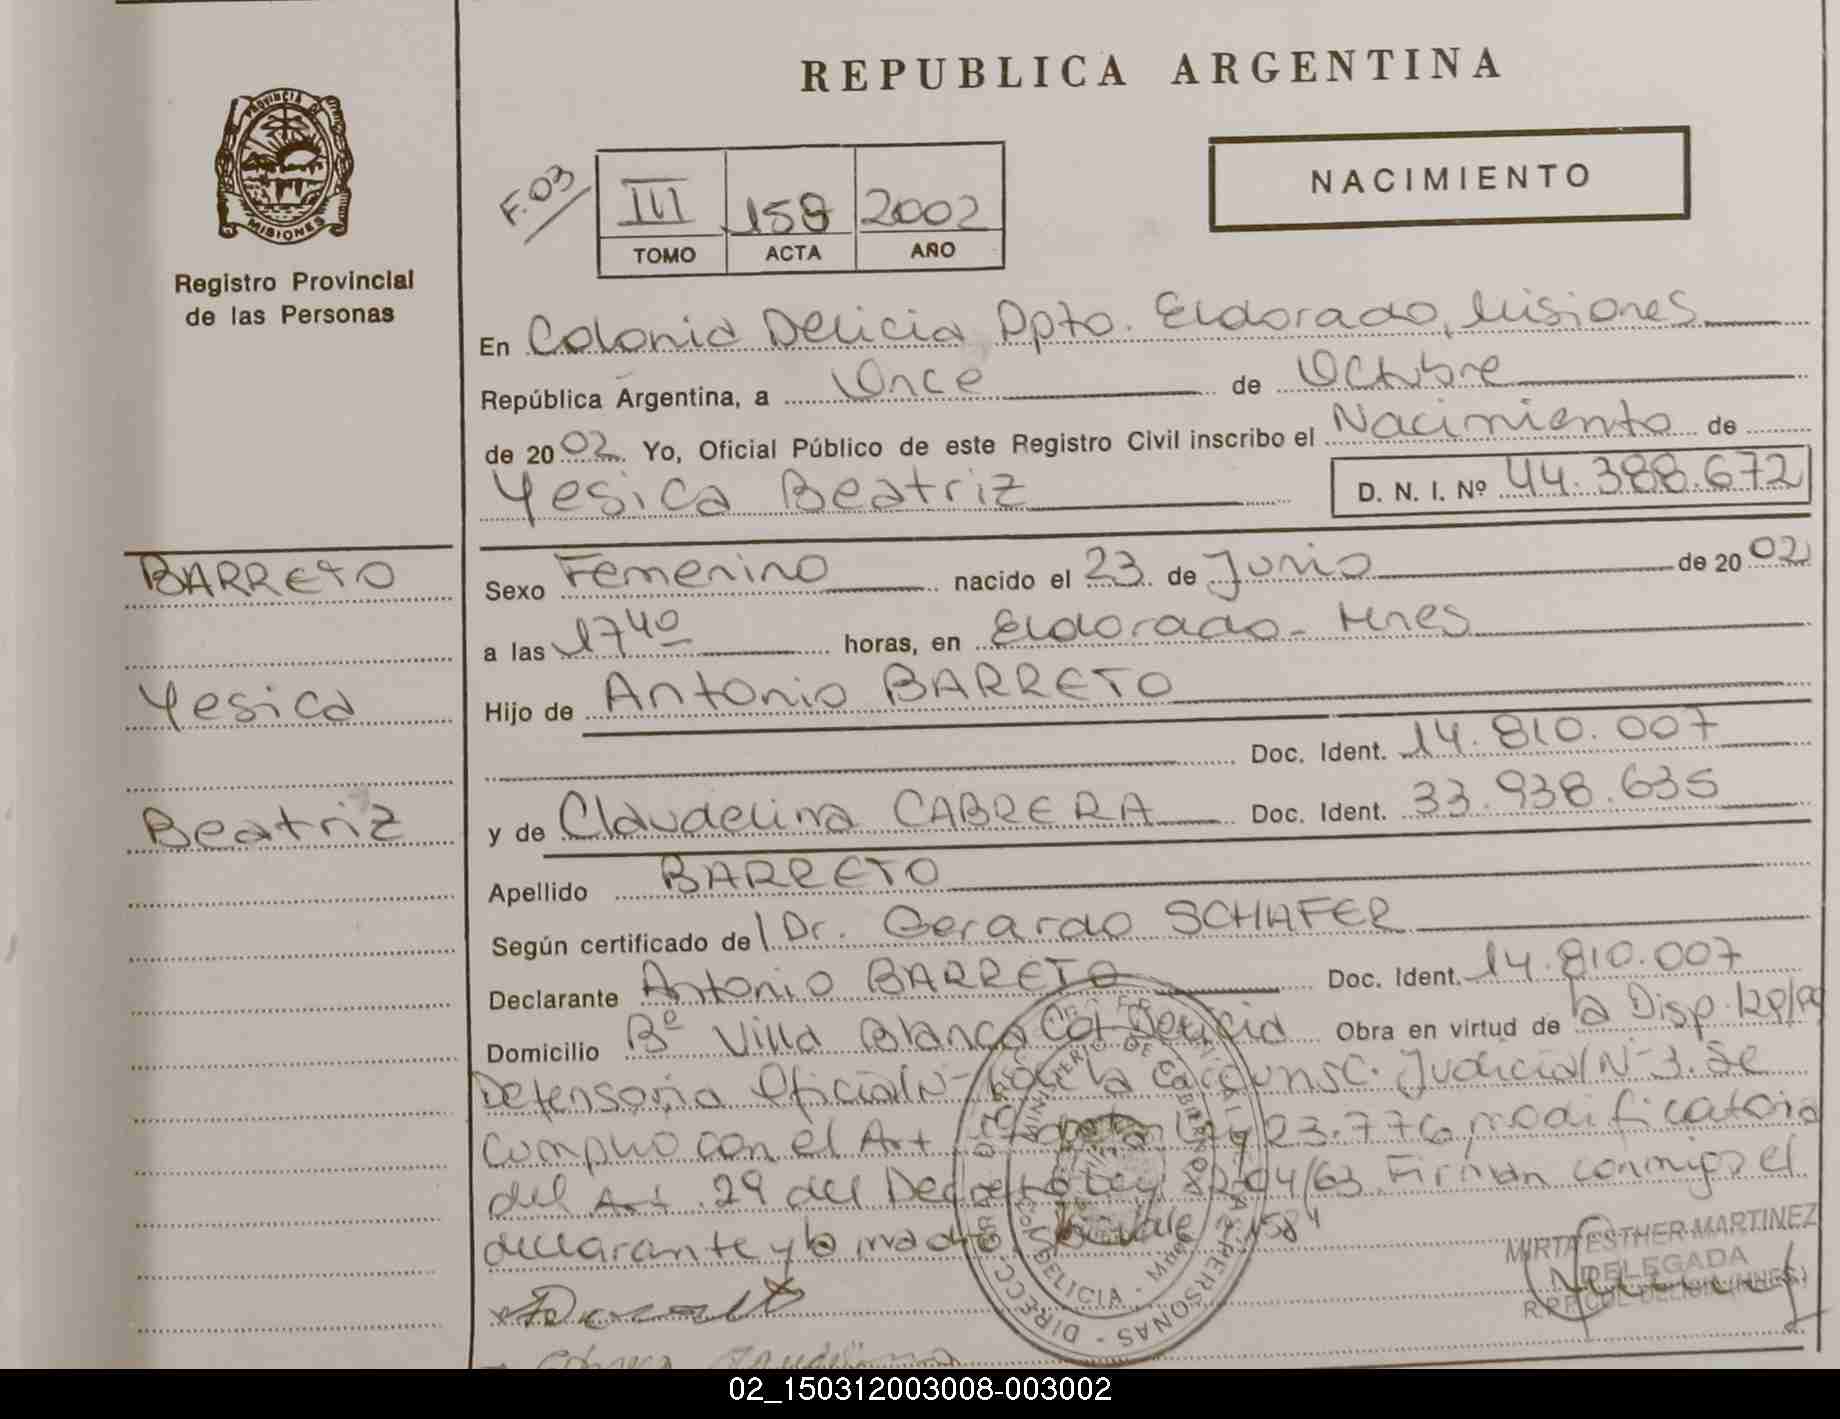 REPUBLICA ARGENTINA
PROVINCIA DE MISIONES
Registro Provincial
de las Personas
F.03
III 158 2002
TOMO ACTA AÑO
NACIMIENTO
En Colonia Delicia Dpto. Eldorado, Misiones
República Argentina, a Once de Octubre
de 2002. Yo, Oficial Público de este Registro Civil inscribo el Nacimiento de
Yesica Beatriz D. N. I. Nº 44.388.672
BARRETO
Yesica
Beatriz
Sexo Femenino nacido el 23 de Junio de 2002
a las 1740 horas, en Eldorado - Mnes
Hijo de Antonio BARRETO
Doc. Ident. 14.810.007
y de Claudelina CABRERA Doc. Ident. 33.938.635
Apellido BARRETO
Según certificado del Dr. Gerardo SCHAFER
Declarante Antonio BARRETO Doc. Ident. 14.810.007
Domicilio Bº Villa Blanca Col Delicia Obra en virtud de la Disp.
Defensoria Oficial de la Circunsc. Judicial Nº 3. Se
cumplió con el Art Ley 23.776 modificatoria
del Art. 29 del Decreto Ley 8204/63. Firman conmigo el
declarante y la madre 158"
MIRTA ESTHER MARTINEZ
DELEGADA
R.P.P. COL. DELICIA (MNES)
02_150312003008-003002